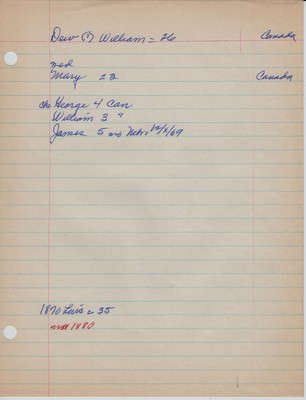 Dew (?) William = 26 Canada
Mary 28 Canada
ch George 4 Can
William 3 "
James 5 mo Nebr 12/x/69
1870 35
not 1880